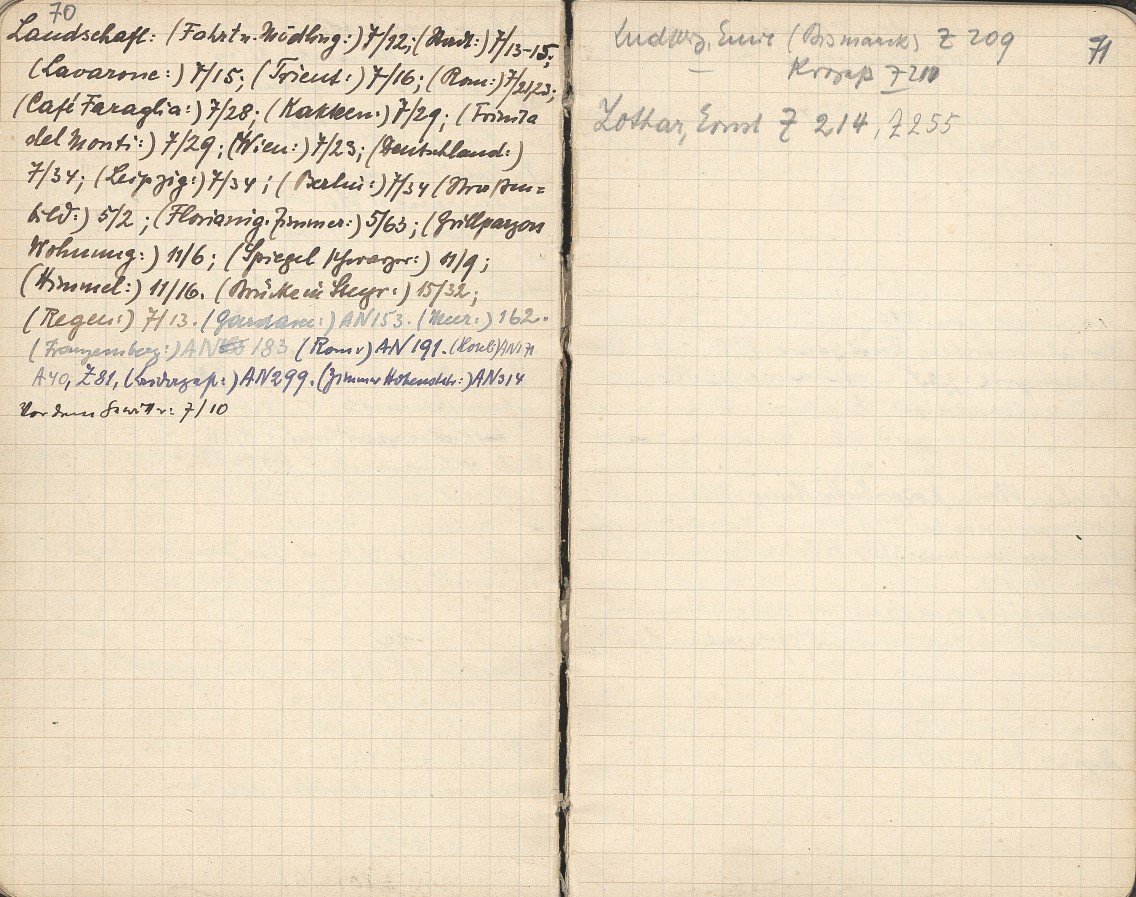 70
Landschaft: (Fahrt n. Mödling:) 7/12; (Stadt:) 7/13-15;
(Lavarone:) 7/15; (Trient:) 7/16; (Rom:) 7/21,23;
(Café Faraglia:) 7/28; (Kakteen:) 7/29; (Trinita
del Monti:) 7/29; (Wien:) 7/23; (Deutschland:)
7/34; (Leipzig:) 7/34; (Berlin:) 7/34 (Straßen=
bild:) 5/2; (Florianig. Zimmer:) 5/63; (Grillparzer
Wohnung:) 11/6; (Spiegel schwarzer:) 11/9;
(Himmel:) 11/16. (Brücke in Steyr:) 15/32;
(Regen:) 7/13. (Gardasee:) AN 153. (Meer:) 162.
(Franzensberg:) AN 183 (Rom:) AN 191. AN 171
A40, Z81, AN 299. (Zimmer Hohenstr:) AN 314
Vor dem Gewitter: 7/10
71
Ludwig, Emil (Bismarck) Z 209
Prozeß Z 211
Lothar, Ernst Z 214, Z 255